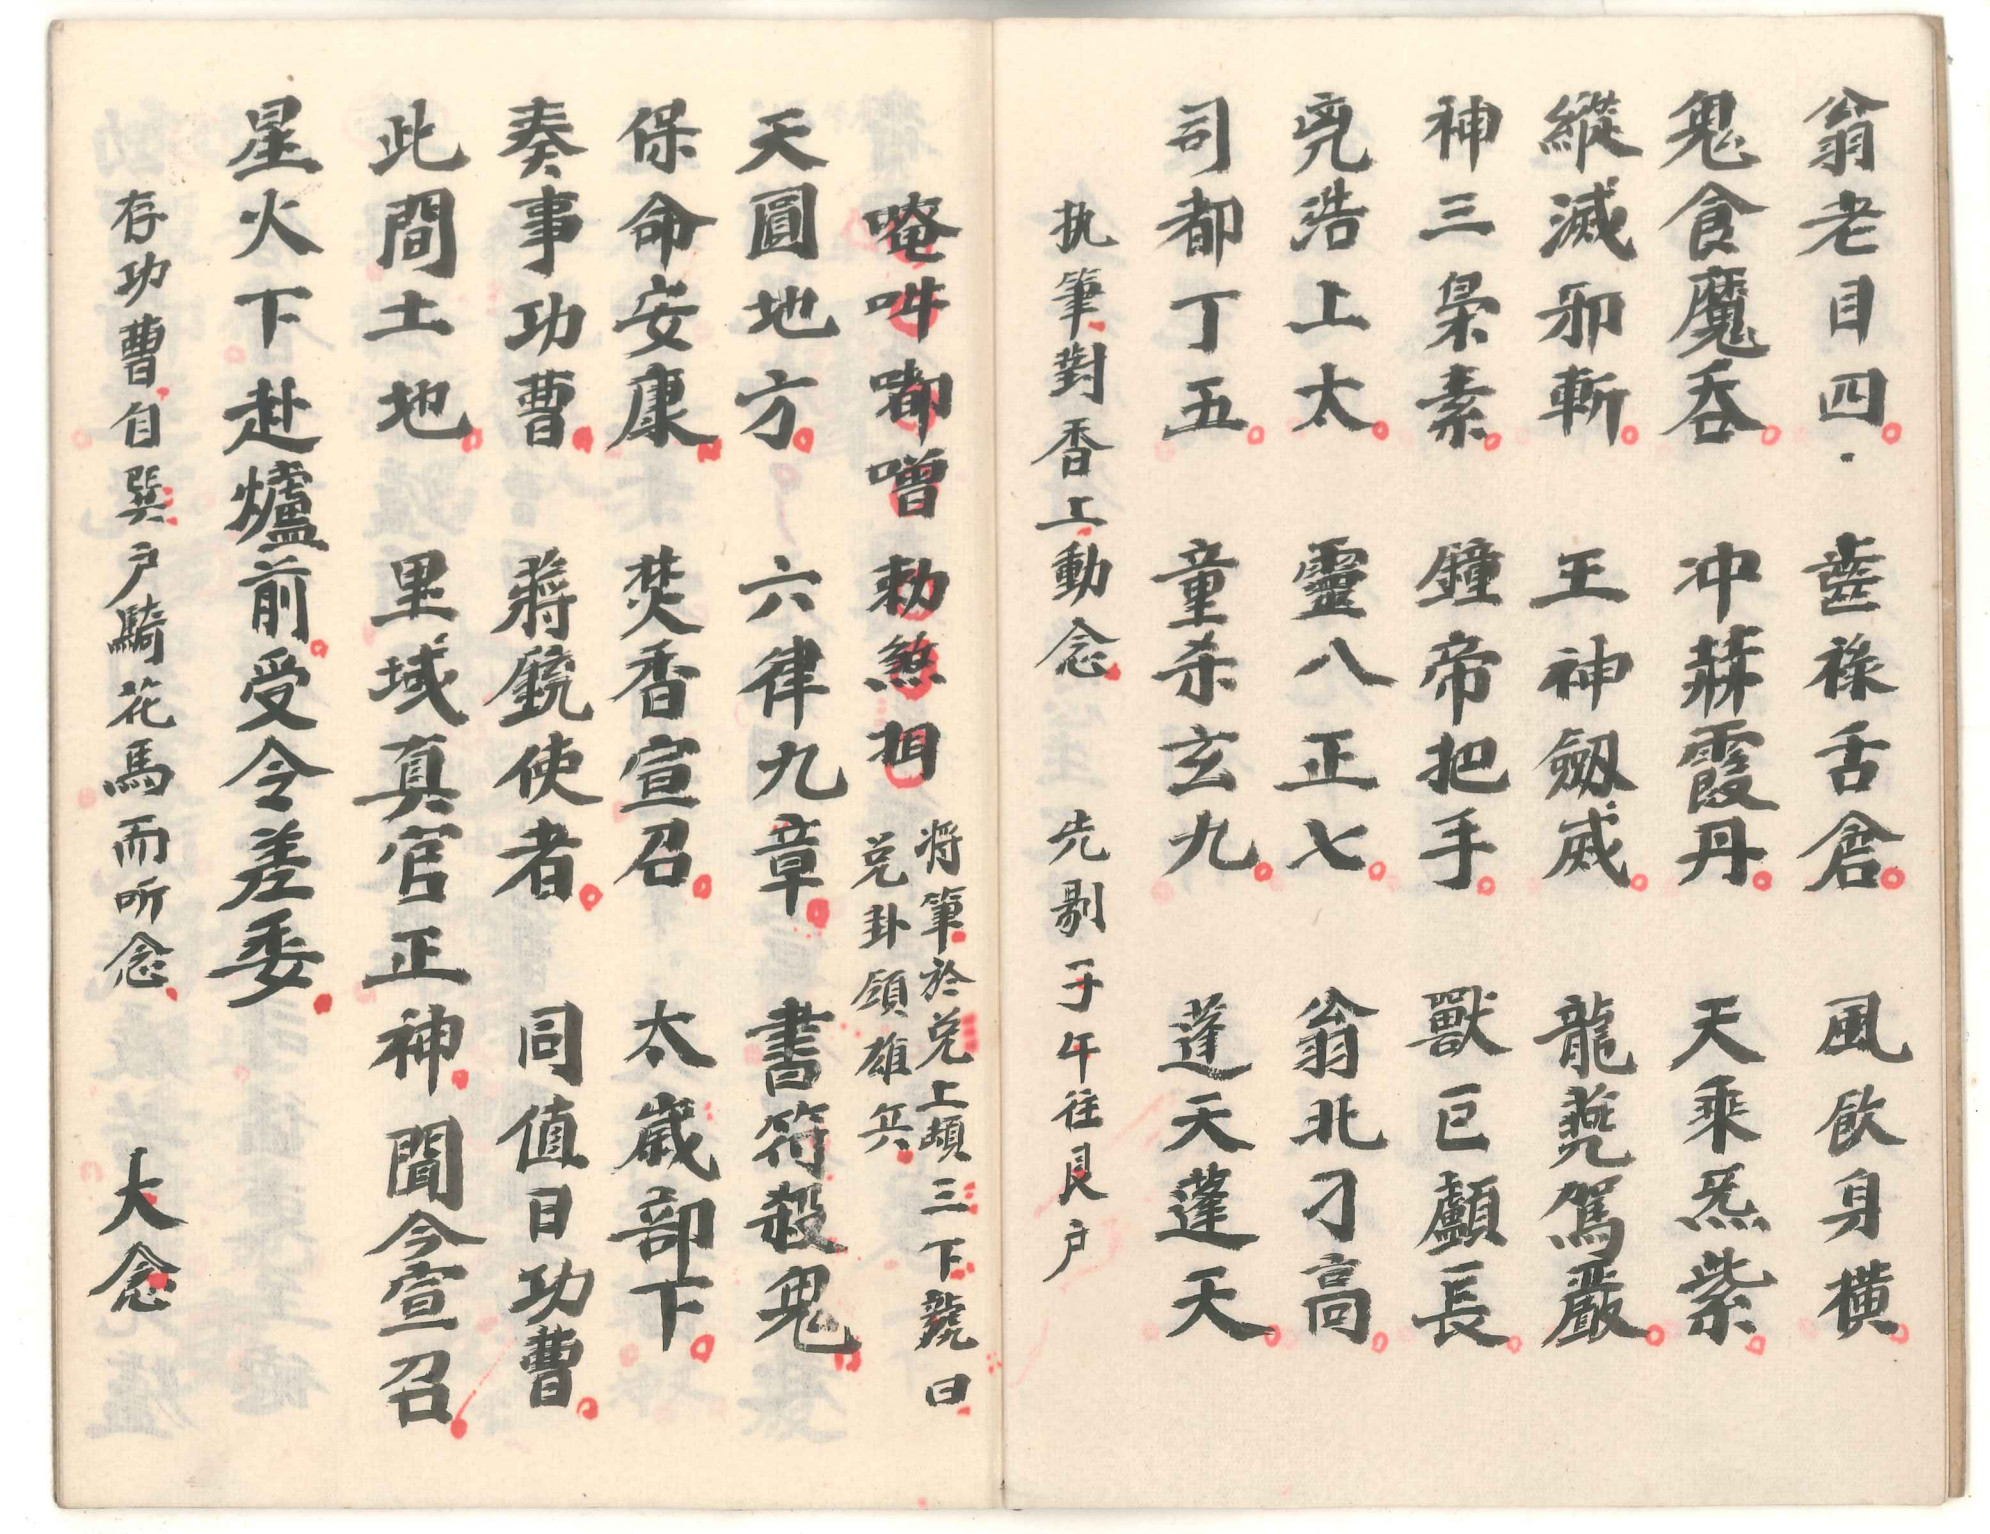 翁老目四 齒祿舌倉 風飲身橫
鬼食魔吞 冲赫霞丹 天乘炁紫
縱滅邪斬 王神劔威 龍夔駕嚴
神三梟素 鐘帝把手 獸巨顱長
兇浩上太 靈八正七 翁北刁高
司都丁五 童杀玄九 蓬天蓬天
执筆對香上動念 先剔子午往艮户
唵吽嘟噌勅煞 将筆於兑上頓三下號曰
兑卦領雄兵
天圓地方 六律九章 書符殺鬼
保命安康 焚香宣召 太歲部下
奏事功曹 蔣銳使者 同值日功曹
此間土地 里域真官正神 聞今宣召
星火下赴爐前受令差委
存功曹自巽户騎花馬而所念 大念